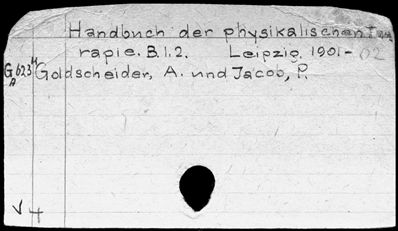 Handbuch der physikalischen The
rapie. B.1.2. Leipzig. 1901-02
G 623 H Goldscheider, A. und Jacob, P.
A
V H